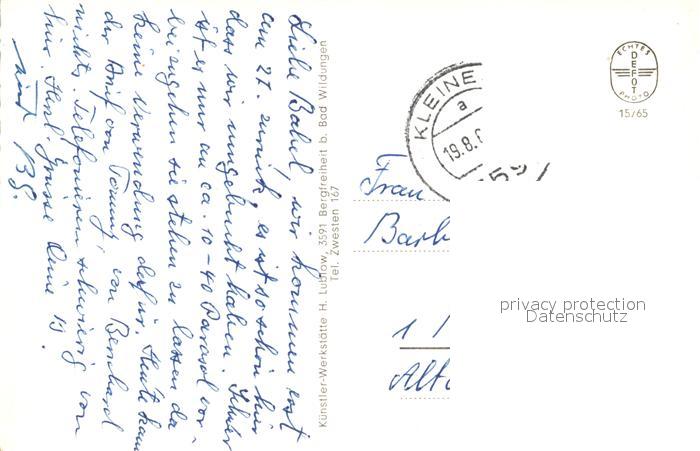 Liebe Babel, wir kommen erst
am 27. zurück, es ist so schön hier
dass wir umgebucht haben. Schade
ist es nur an ca. 10-40 Parasol vor-
beizugehen sie stehen zu lassen da
keine Verwendung dafür. Heute kam
der Brief von Tommy, von Bernhard
nichts. Telefonieren schwierig von
hier. Herzl. Grüsse Deine B
und Bg.
Künstler-Werkstätte H. Lublow, 3591 Bergfreiheit b. Bad Wildungen
Tel. Zwesten 167
ECHTES
DEFOT
PHOTO
15/65
KLEINE
a
19.8.6
359
Frau
Barb
1 /
Alt
privacy protection
Datenschutz